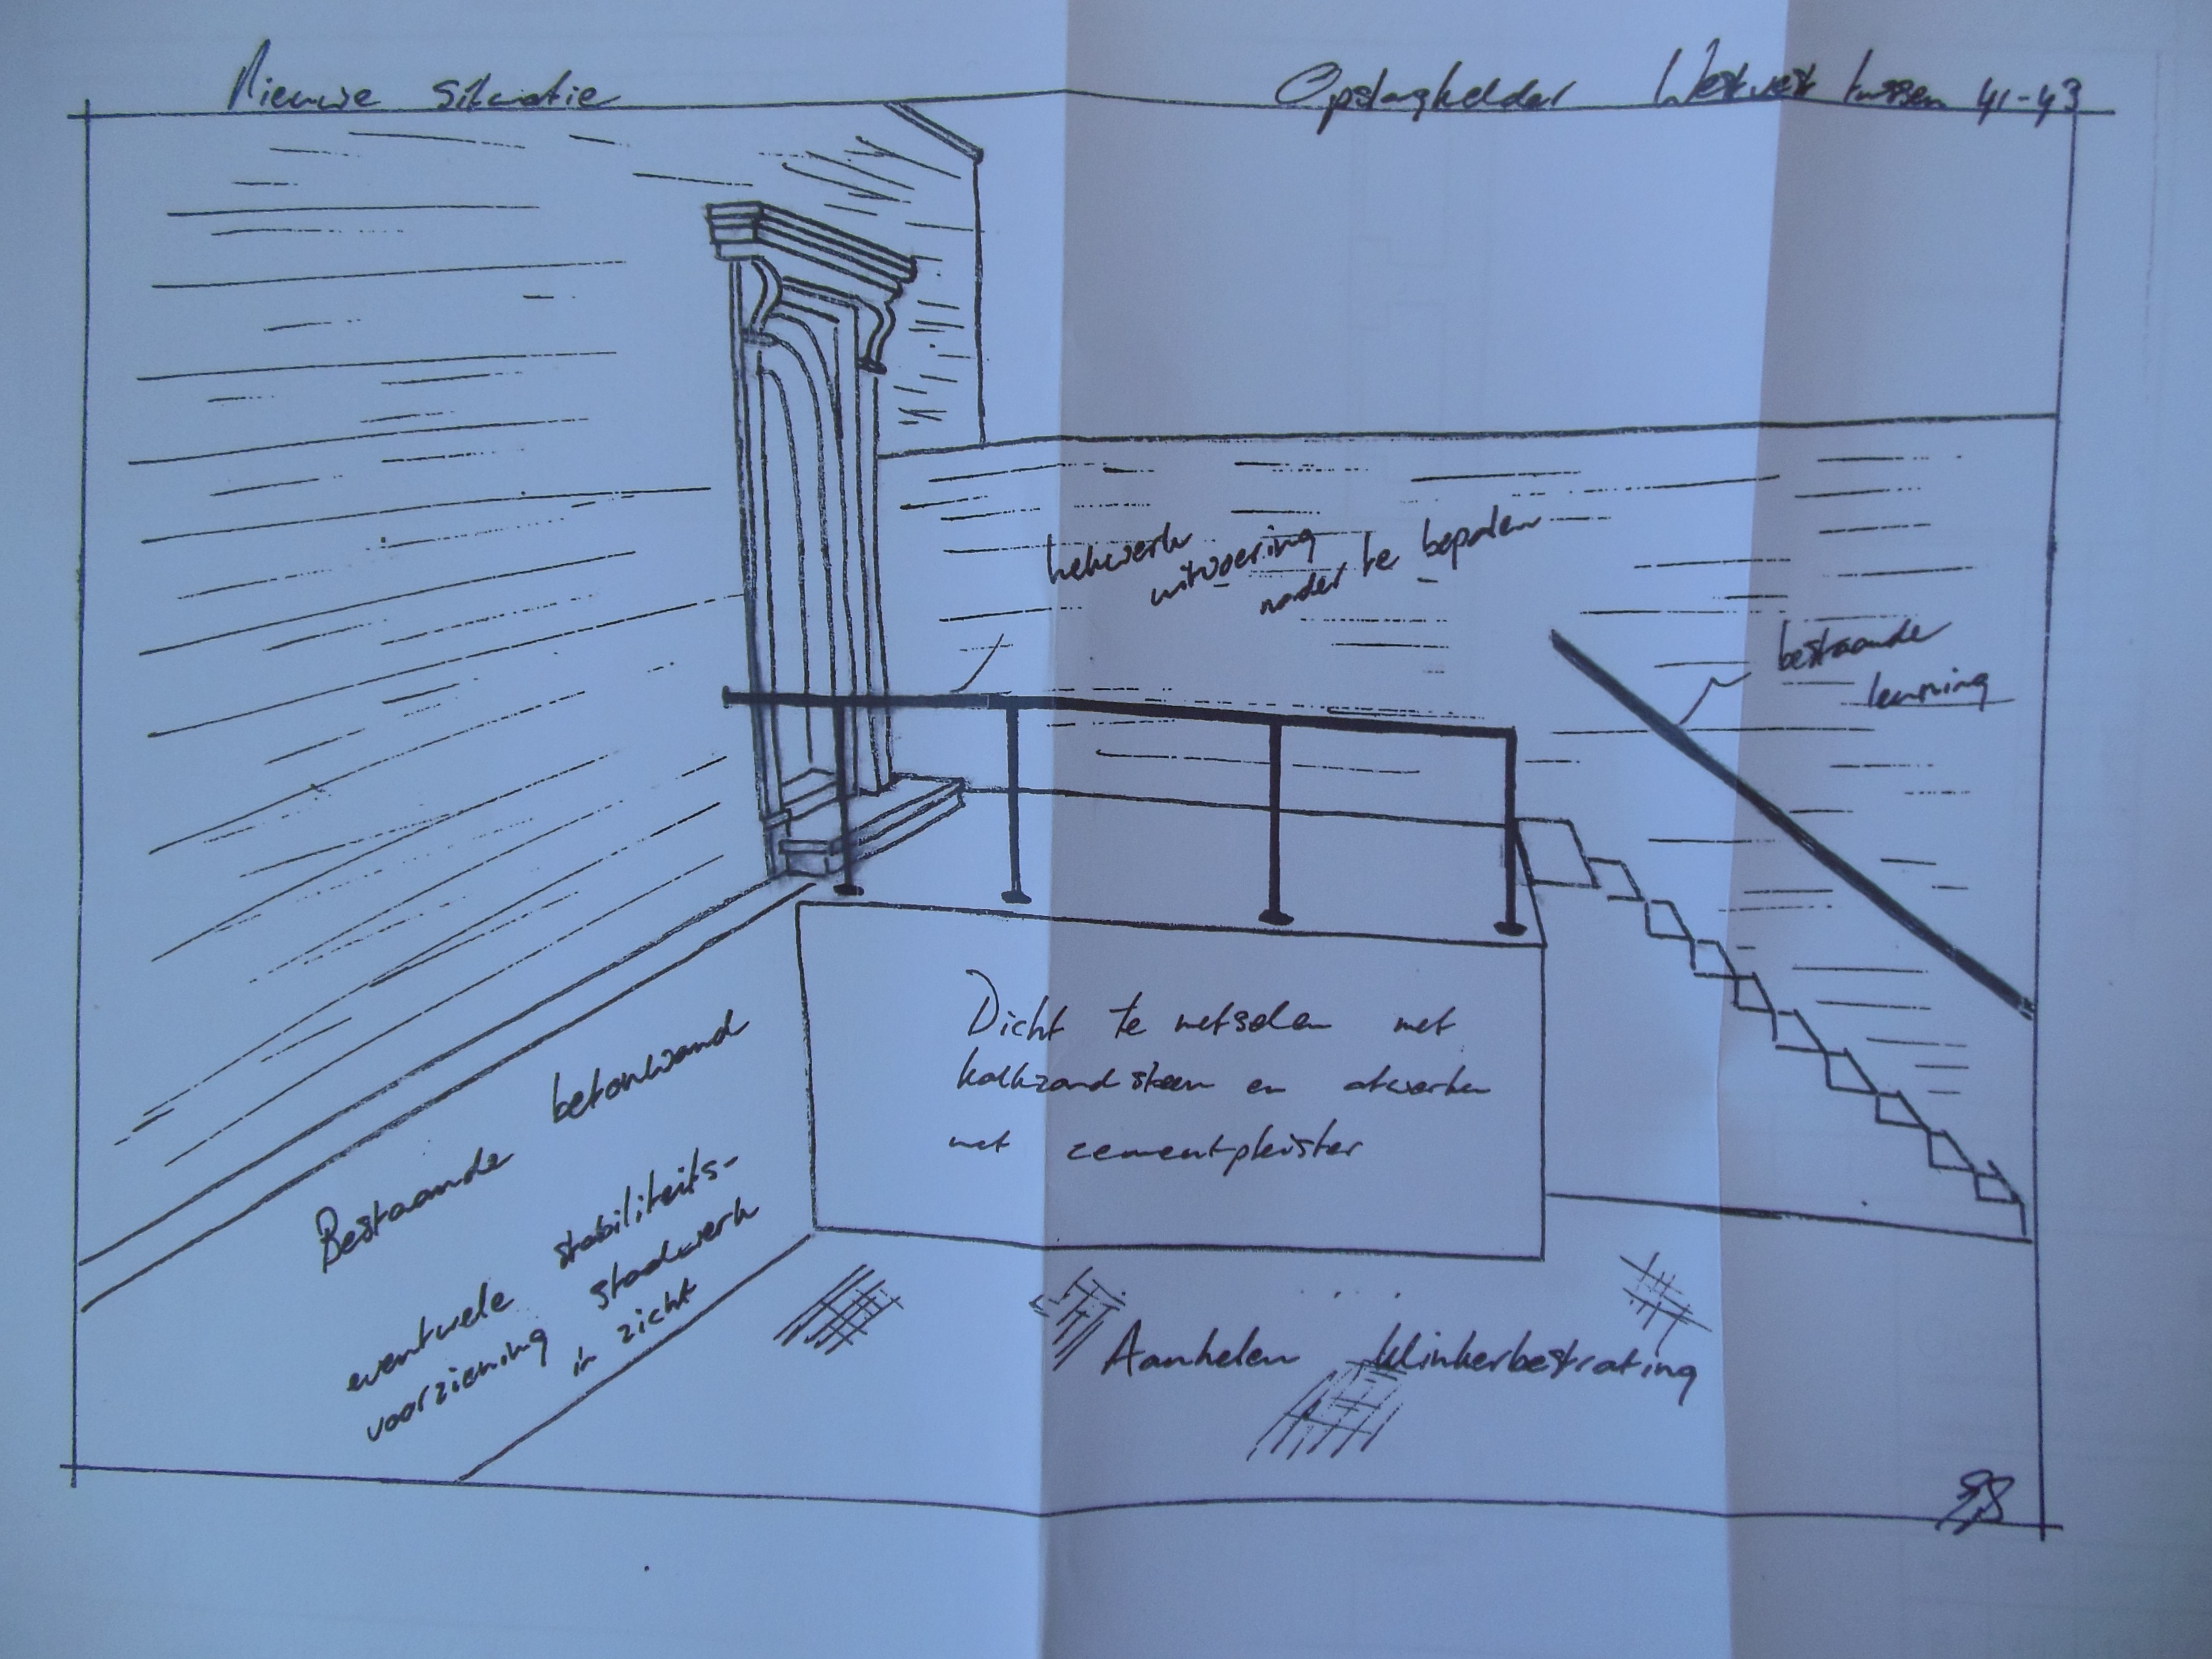 Nieuwe situatie
Opslagkelder Westvest tussen 41-43
hekwerk
uitvoering
nader te bepalen
bestaande
leuning
Dicht te metselen met
kalkzandsteen en afwerken
met cementpleister
Bestaande betonwand
eventuele stabiliteits-
voorziening staalwerk
in zicht
Aanhelen klinkerbestrating